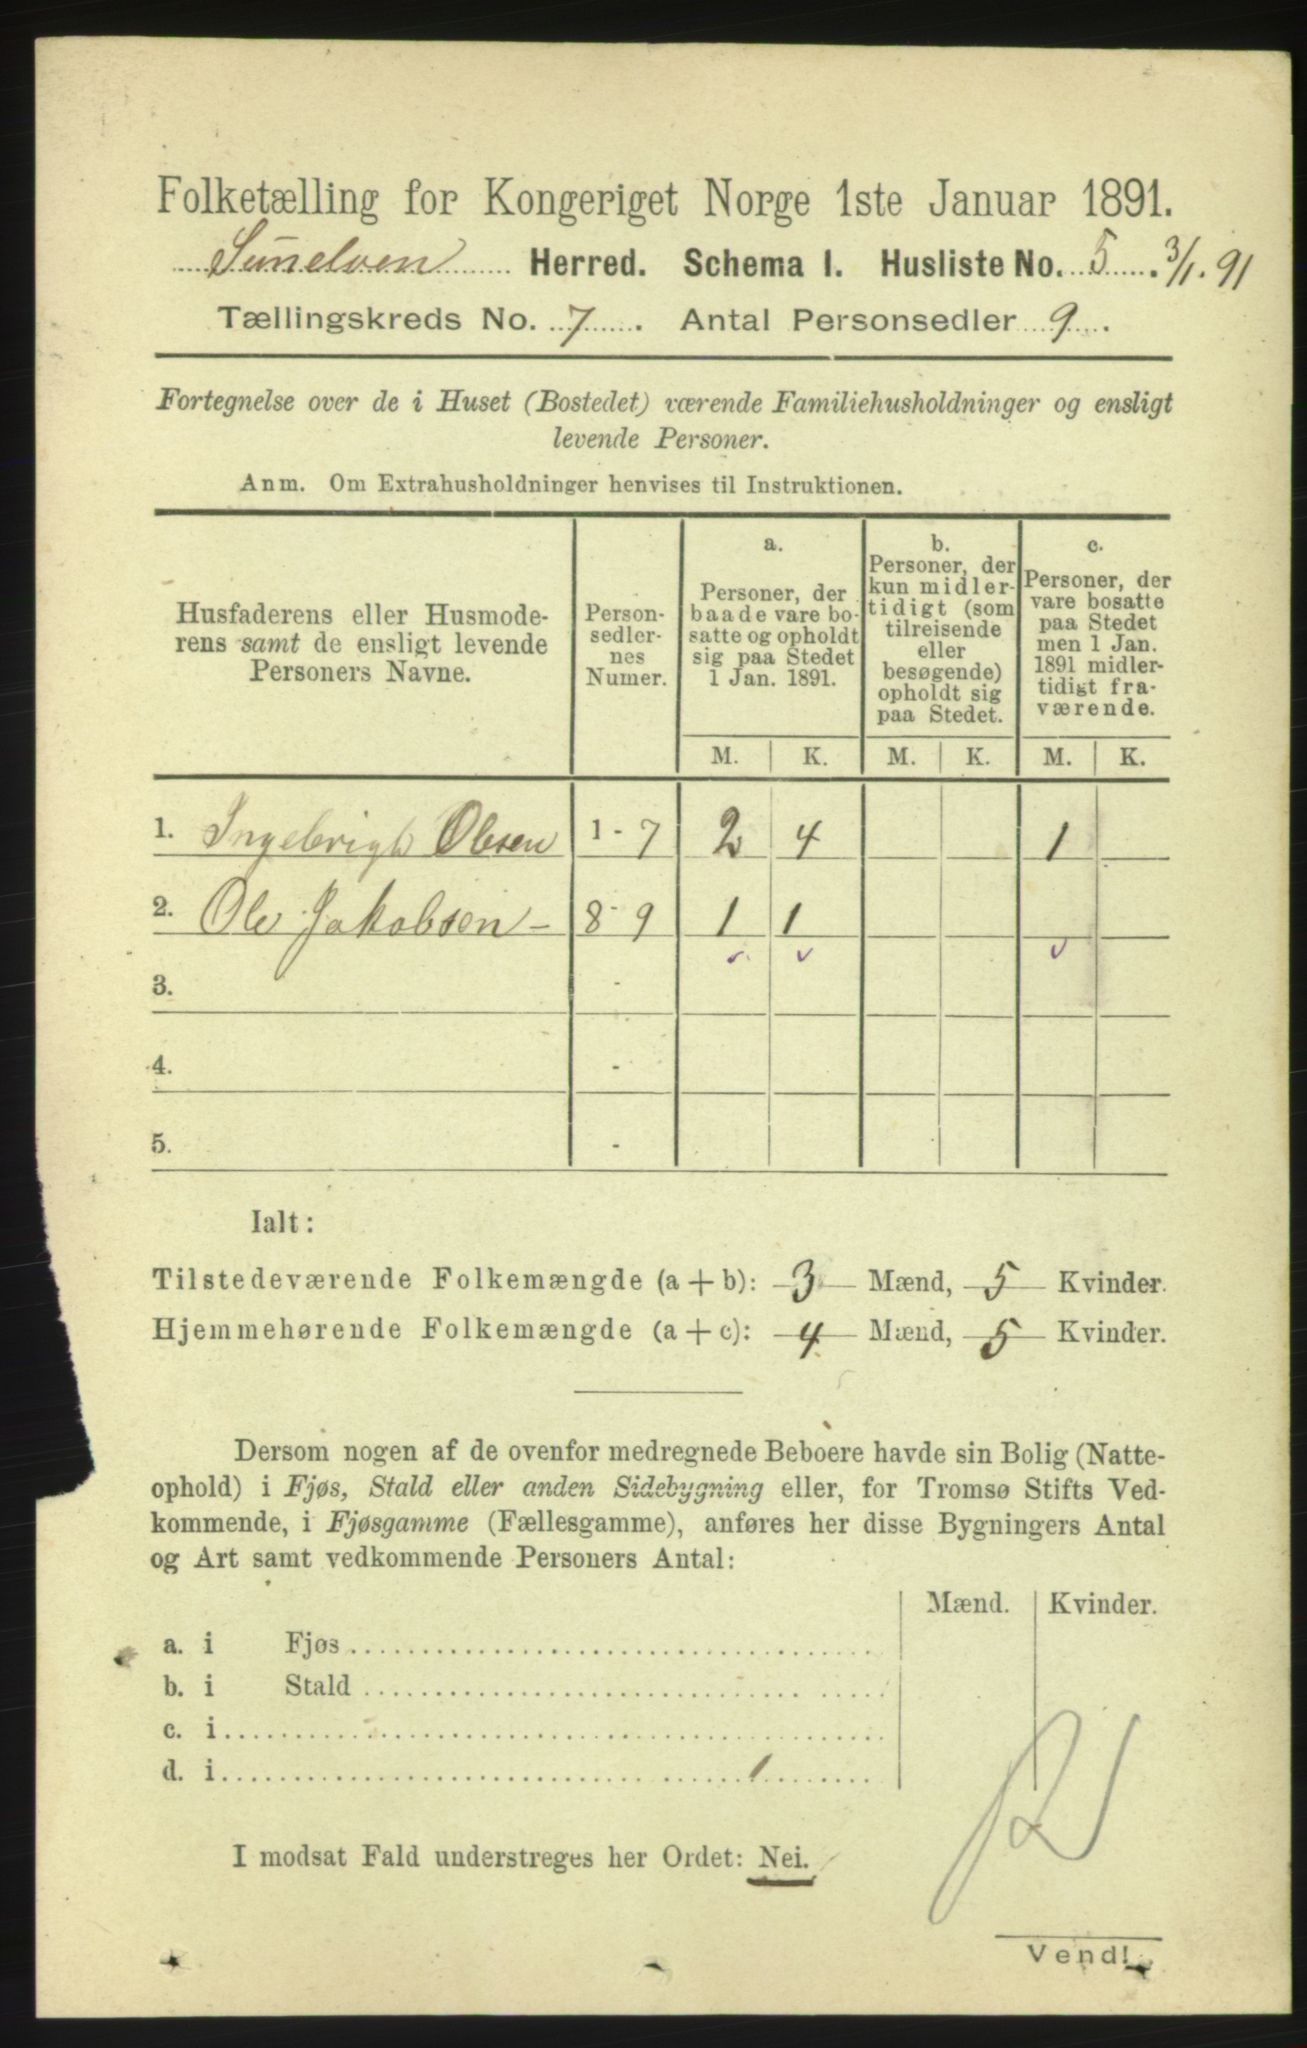 Folketælling for Kongeriget Norge 1ste Januar 1891.
Sunelven Herred. Schema I. Husliste No. 5. 3/1. 91
Tællingskreds No. 7. Antal Personsedler 9.
Fortegnelse over de i Huset (Bostedet) værende Familiehusholdninger og ensligt
levende Personer.
Anm. Om Extrahusholdninger henvises til Instruktionen.
Husfaderens eller Husmode-
rens samt de ensligt levende
Personers Navne.
Person-
sedler-
nes
Numer.
a.
Personer, der
baade vare bo-
satte og opholdt
sig paa Stedet
1 Jan. 1891.
b.
Personer, der
kun midler-
tidigt (som
tilreisende
eller
besøgende)
opholdt sig
paa Stedet.
c.
Personer, der
vare bosatte
paa Stedet
men 1 Jan.
1891 midler-
tidigt fra-
værende.
M. K. M. K. M. K.
1. Ingebrigt Olsen 1 - 7 2 4 1
2. Ole Jakobsen - 8 - 9 1 1
3. -
4. -
5. -
Ialt:
Tilstedeværende Folkemængde (a + b): 3 Mænd, 5 Kvinder.
Hjemmehørende Folkemængde (a + c): 4 Mænd, 5 Kvinder.
Dersom nogen af de ovenfor medregnede Beboere havde sin Bolig (Natte-
ophold) i Fjøs, Stald eller anden Sidebygning eller, for Tromsø Stifts Ved-
kommende, i Fjøsgamme (Fællesgamme), anføres her disse Bygningers Antal
og Art samt vedkommende Personers Antal:
Mænd. Kvinder.
a. i Fjøs
b. i Stald
c. i
d. i
I modsat Fald understreges her Ordet: Nei.
Vend!